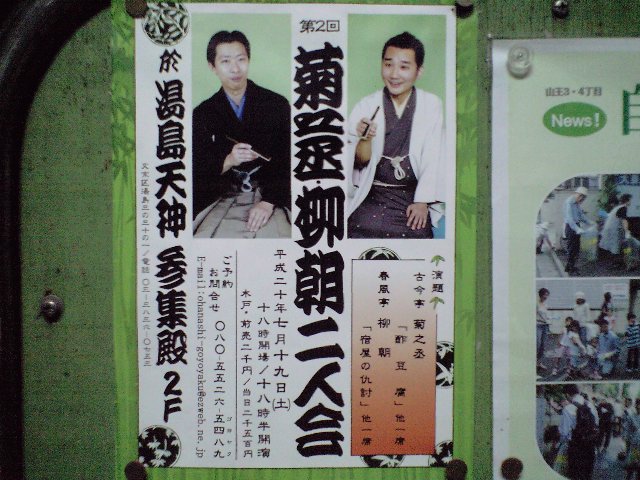 第2回
菊之丞 柳朝 二人会
於 湯島天神 参集殿 2F
文京区湯島三の三十の一/電話 〇三-三八三六-〇七五三
平成二十年七月十九日(土)
十八時開場/十八時半開演
木戸・前売二千円/当日二千五百円
ご予約
お問合せ 〇八〇-五五二六-五四八九
ゴヨヤク
E-mail:ohanashi-goyoyaku@ezweb.ne.jp
演題
古今亭 菊之丞
「酢豆腐」他一席
春風亭 柳朝
「宿屋の仇討」他一席
山王3・4丁目
News!